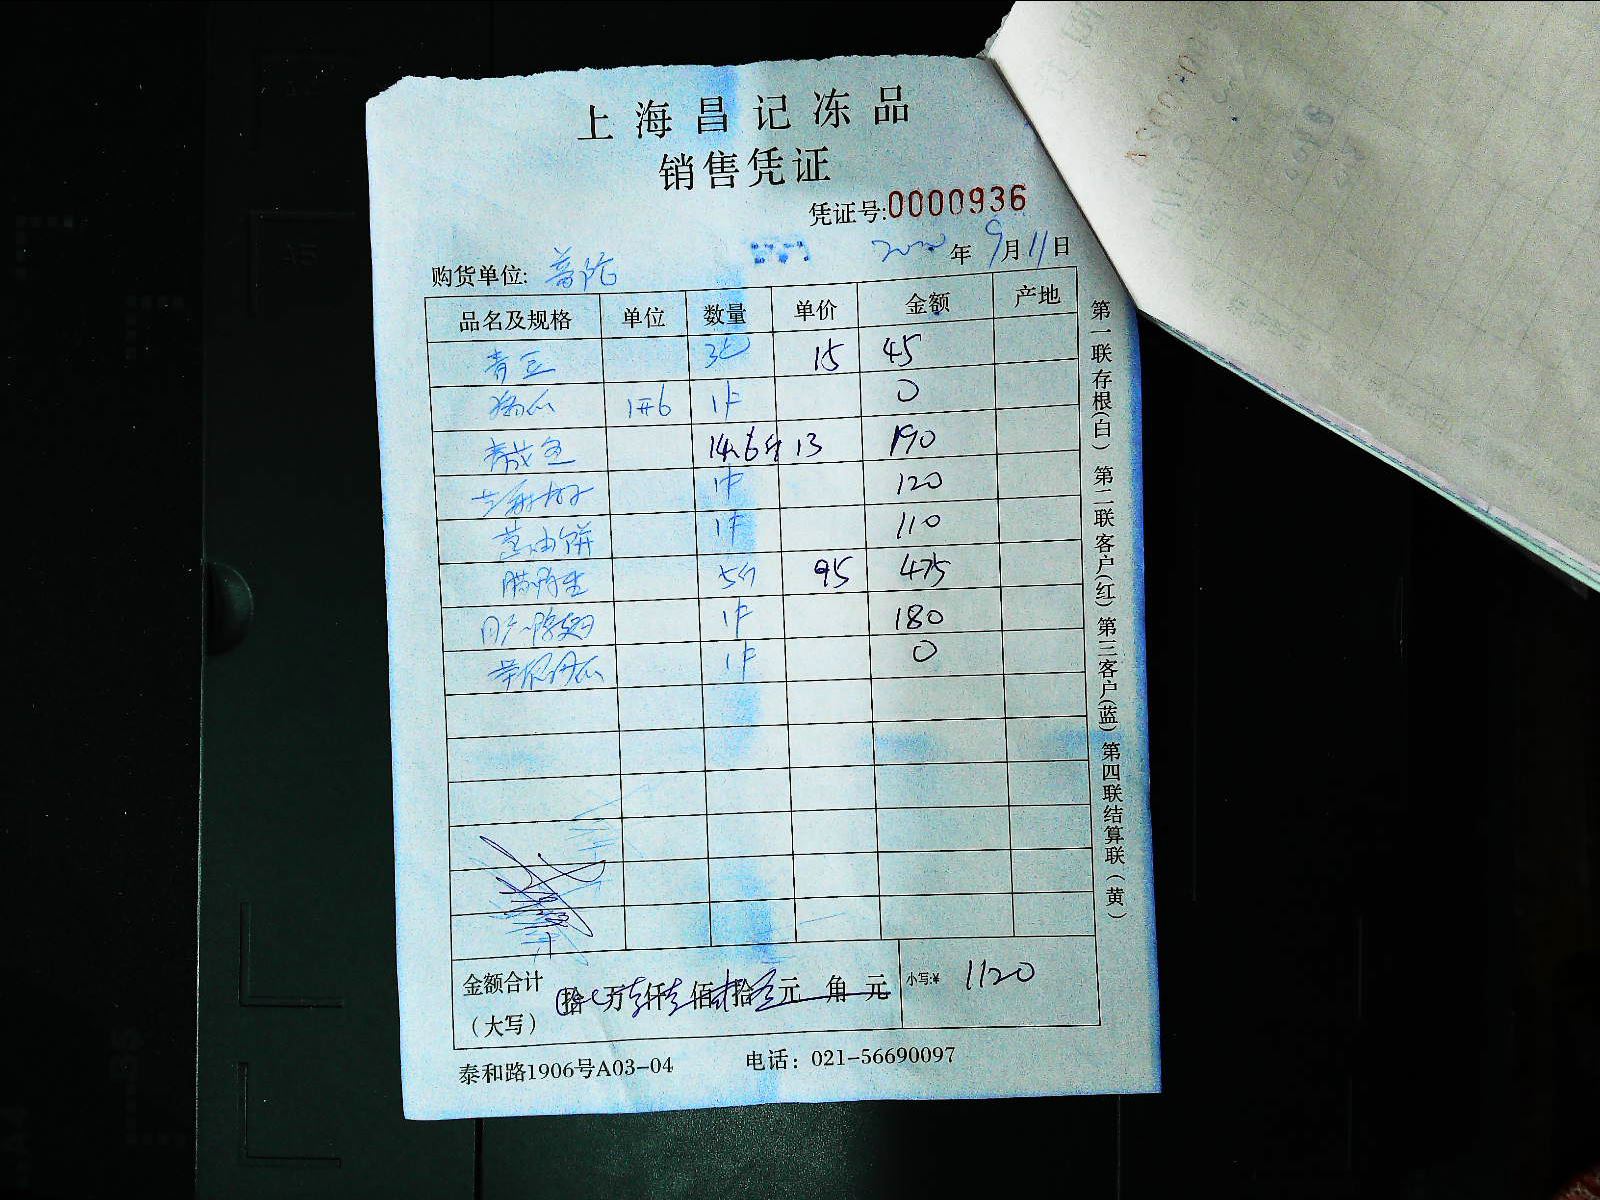 上海昌记冻品
销售凭证
凭证号:0000936
年9月11日
购货单位: 普陀
品名及规格 单位 数量 单价 金额 产地
青豆 3包 15 45
1件 0
14.6斤 13 190
1件 120
葱油饼 1件 110
5 95 475
1件 180
1件 0
金额合计
(大写)
拾 万 仟 佰 拾 元 角 元 小写:¥ 1120
泰和路1906号A03-04 电话: 021-56690097
第一联存根(白) 第二联客户(红) 第三客户(蓝) 第四联结算联(黄)